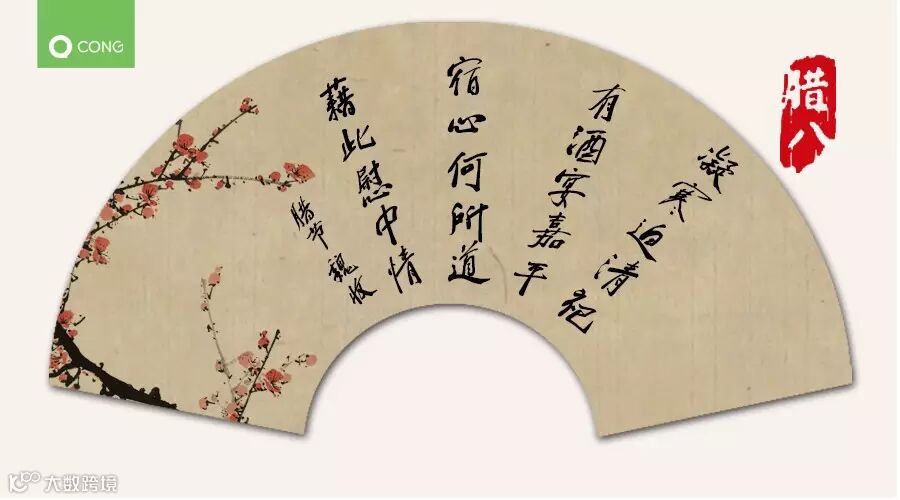 CONG
腊八
凝寒迫清祀
有酒宴嘉平
宿心何所道
藉此慰中情
腊节 魏收
大数跨境